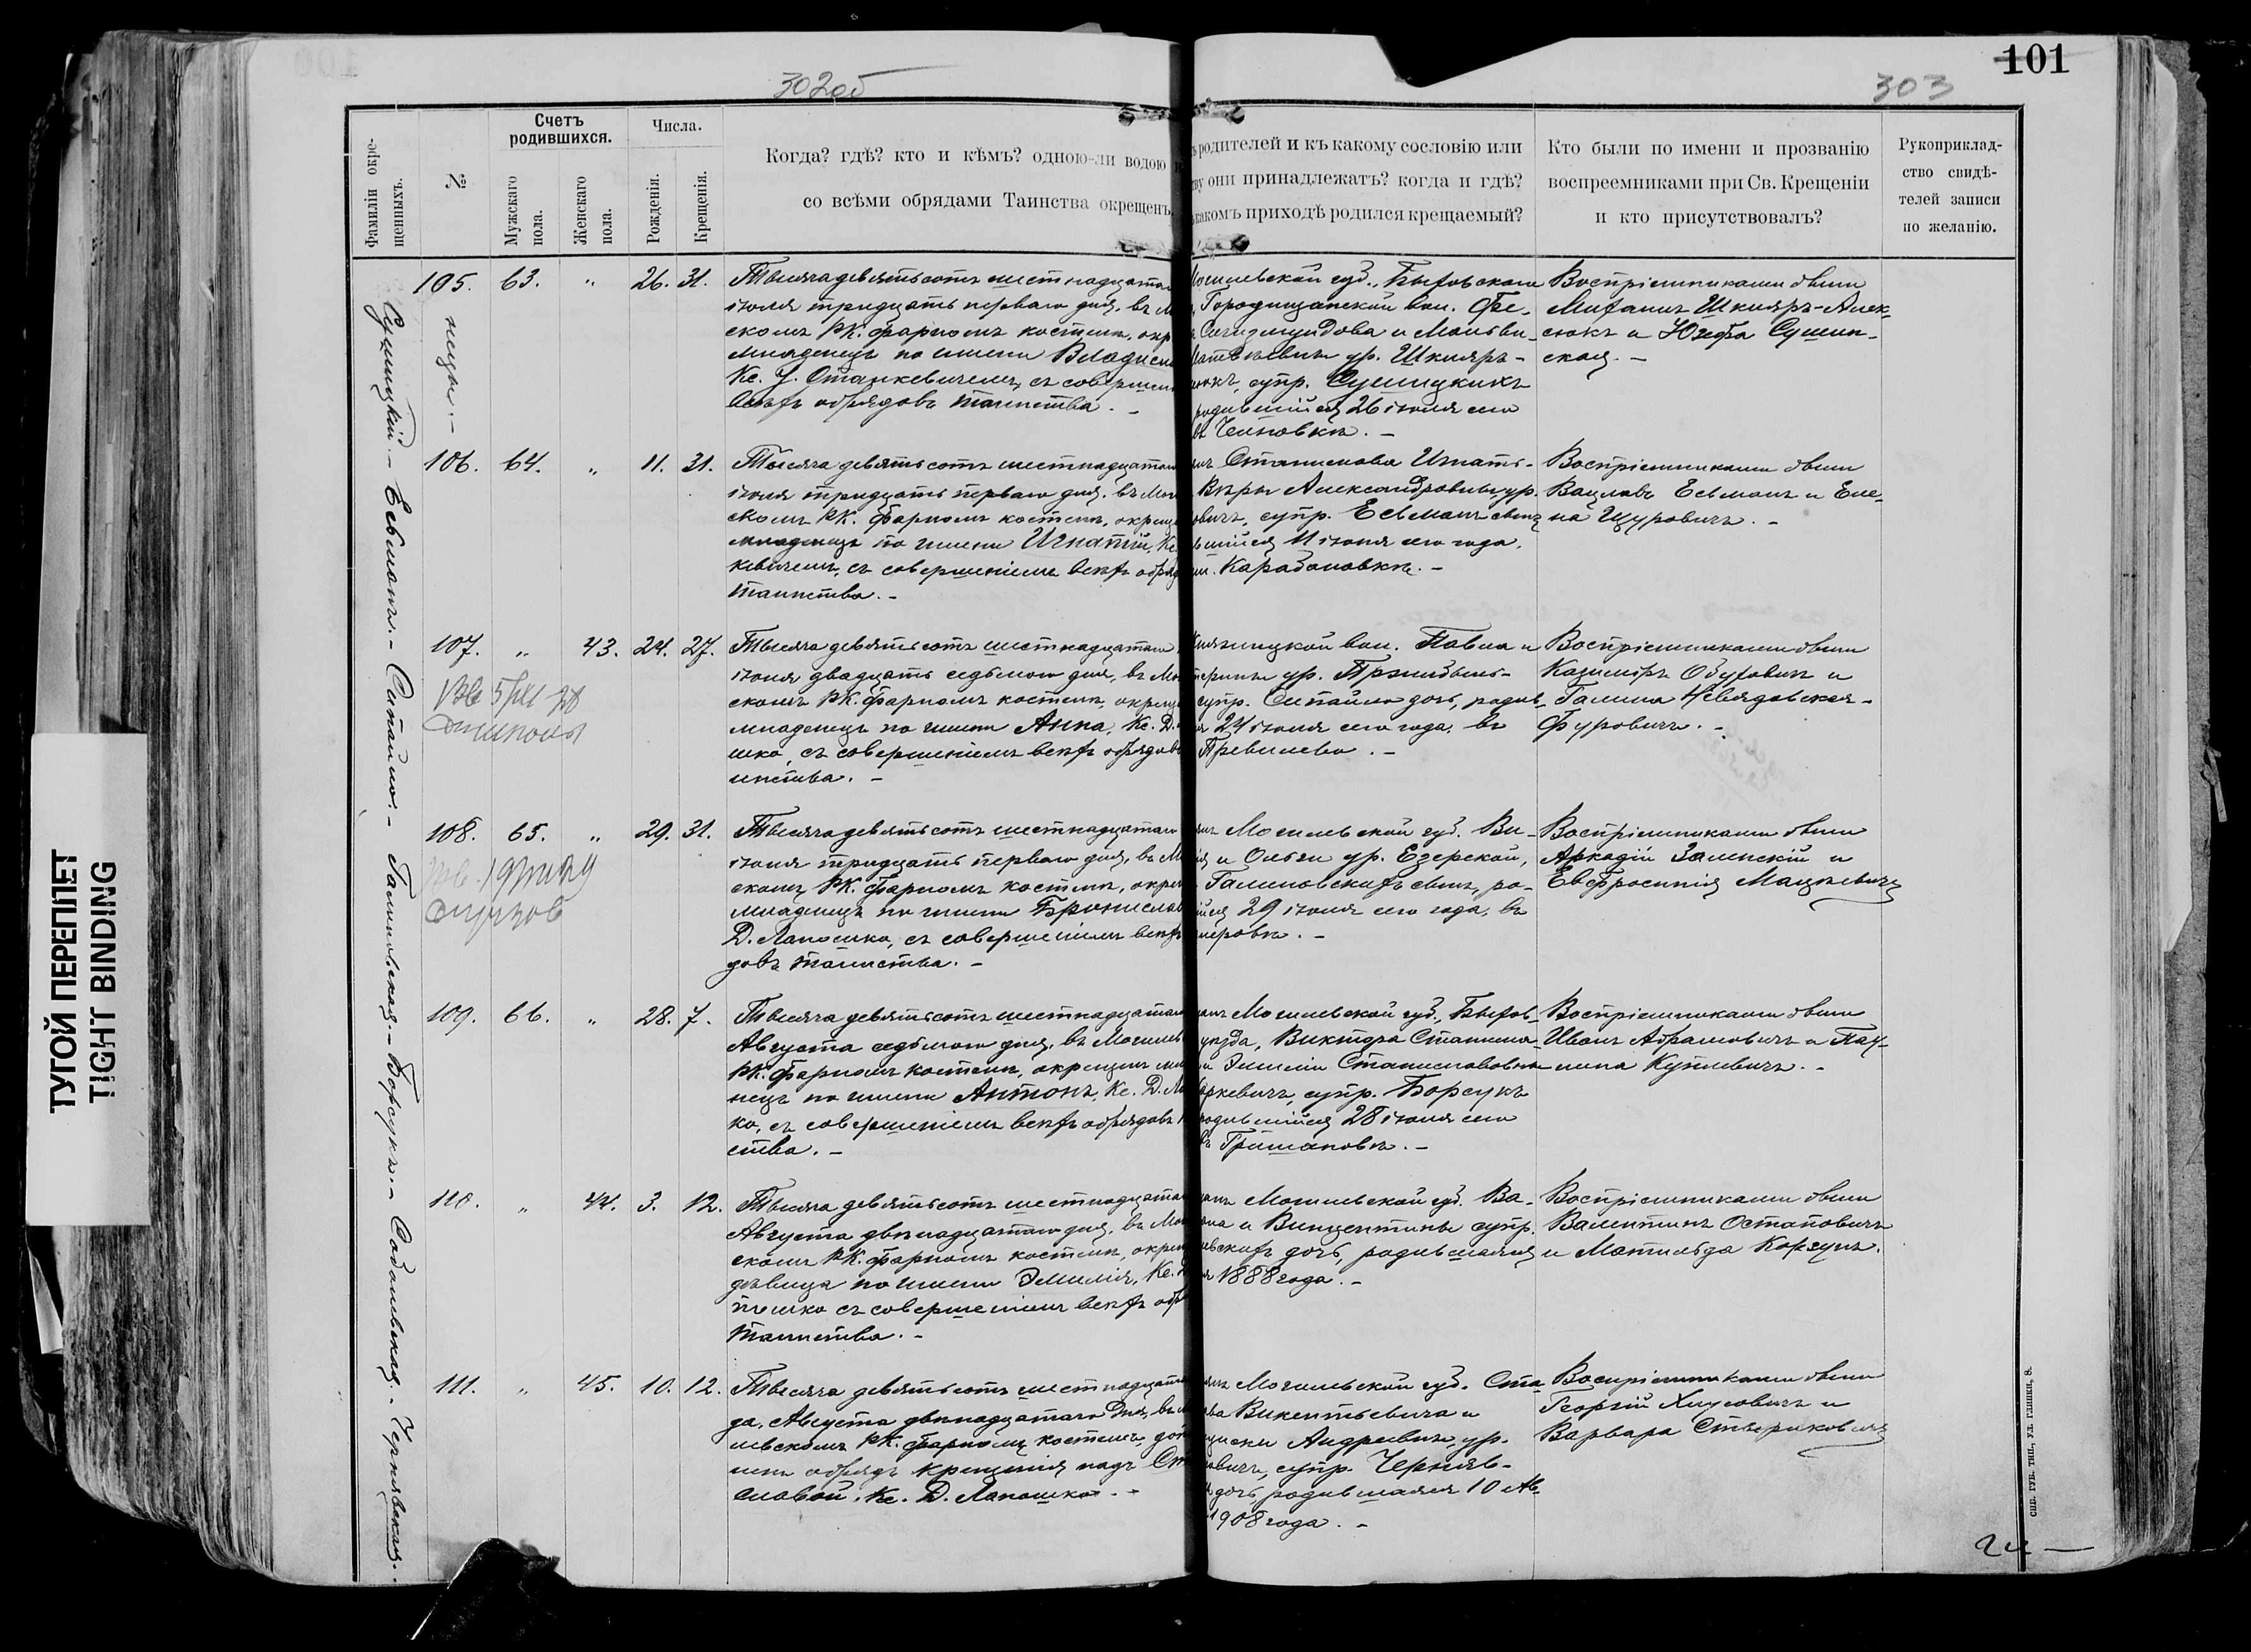 302об
303
101
Фамиліи окре-
щенныхъ.
№
Счетъ
родившихся.
Мужскаго
пола.
Женскаго
пола.
Числа.
Рожденія.
Крещенія.
Когда? гдѣ? кто и кѣмъ? одною-ли водою
со всѣми обрядами Таинства окрещенъ
родителей и къ какому сословію или
ву они принадлежатъ? когда и гдѣ?
какомъ приходѣ родился крещаемый?
Кто были по имени и прозванію
воспреемниками при Св. Крещеніи
и кто присутствовалъ?
Рукоприклад-
ство свидѣ-
телей записи
по желанію.
Сушицкій. - Есьманъ. - Ситайло. - Галиновская. - Борсукъ. - Чернявская.
105. 63. " 26. 31.
Тысяча девятьсотъ шестнадцата
іюля тридцать перваго дня, въ М
скомъ РК. фарномъ костелѣ, окр
младенецъ по имени Владисла
Кс. І. Станкевичемъ, съ совершен
всѣхъ обрядовъ таинства. -
Могилевской губ., Быховскаго
Городищанской вол. Фе-
Сигизмундова и Мальви-
Матвѣевны ур. Шкляръ-
юкъ, супр. Сушицкихъ
родившійся 26 іюля сего
въ Челновкѣ. -
Воспріемниками были
Стефанъ Шкляръ-Алек-
сюкъ и Юзефа Сушин-
ская. -
106. 64. " 11. 31.
Тысяча девятьсотъ шестнадцатаго
іюля тридцать перваго дня, въ Мог
скомъ РК. фарномъ костелѣ, окрещ
младенецъ по имени Игнатій, Кс.
кевичемъ, съ совершеніемъ всѣхъ обряд
таинства. -
Станислава Игнатъ-
Вѣры Александровны ур.
овичъ, супр. Есьманъ сынъ
вшійся 11 іюля сего года,
Карабановкѣ. -
Воспріемниками были
Вацлавъ Есьманъ и Еле-
на Щуровичъ. -
107. " 43. 24. 27.
Тысяча девятьсотъ шестнадцатаго
іюля двадцать седьмого дня, въ Мо
скомъ РК. фарномъ костелѣ, окрещ
младенецъ по имени Анна, Кс. Д.
шко, съ совершеніемъ всѣхъ обрядовъ
инства. -
Княжицкой вол. Павла и
терины ур.
супр. Ситайло дочь, родив-
24 іюля сего года, въ
Требилево. -
Воспріемниками были
Казиміръ Обуховичъ и
Галина Невядовская-
Фуровичъ. -
108. 65. " 29. 31.
Тысяча девятьсотъ шестнадцатаго
іюля тридцать перваго дня, въ М
скомъ РК. фарномъ костелѣ, окрещ
младенецъ по имени Брониславъ
Д. Лапошко, съ совершеніемъ всѣхъ
довъ таинства. -
Могилевской губ. Ви-
и Ольги ур. Езерской,
Галиновскихъ сынъ, ро-
29 іюля сего года, въ
Воспріемниками были
Аркадій Заленскій и
Евфросинія Мацкевичъ
109. 66. " 28. 7.
Тысяча девятьсотъ шестнадцатаго
Августа седьмого дня, въ Могилев
РК. фарномъ костелѣ, окрещенъ мла
нецъ по имени Антонъ, Кс. Д. Ла
ко, съ совершеніемъ всѣхъ обрядовъ
ства. -
Могилевской губ., Быхов-
уѣзда, Виктора Станисла-
и Эмиліи Станиславовны
супр. Борсукъ
родившійся 28 іюля сего
въ Гришановкѣ. -
Воспріемниками были
Иванъ Абрамовичъ и Пау-
лина Куплевичъ. -
110. " 44. 3. 12.
Тысяча девятьсотъ шестнадцата
Августа двѣнадцатаго дня, въ Мо
скомъ РК. фарномъ костелѣ, окрещ
дѣвица по имени Эмилія, Кс.
пошко съ совершеніемъ всѣхъ обр
таинства. -
Могилевской губ. Ва-
и Винцентины супр.
вскихъ дочь, родившаяся
1888 года. -
Воспріемниками были
Валентинъ Остаповичъ
и Матильда Корзунъ.
111. " 45. 10. 12.
Тысяча девятьсотъ шестнадцата
да, Августа двѣнадцатаго дня, въ
левскомъ РК. фарномъ костелѣ, до
ненъ обрядъ крещенія надъ Ст
славой, Кс. Д. Лапошко. -
Могилевской губ. Ста-
ва Викентьевича и
Андреевны, ур.
овичъ, супр. Черняв-
дочь, родившаяся 10 Ав-
1908 года. -
Воспріемниками были
Георгій и
Варвара
СПБ. ГУБ. ТИП., УЛ. ГЛИНКИ, 8.
ТУГОЙ ПЕРЕПЛЕТ
TIGHT BINDING